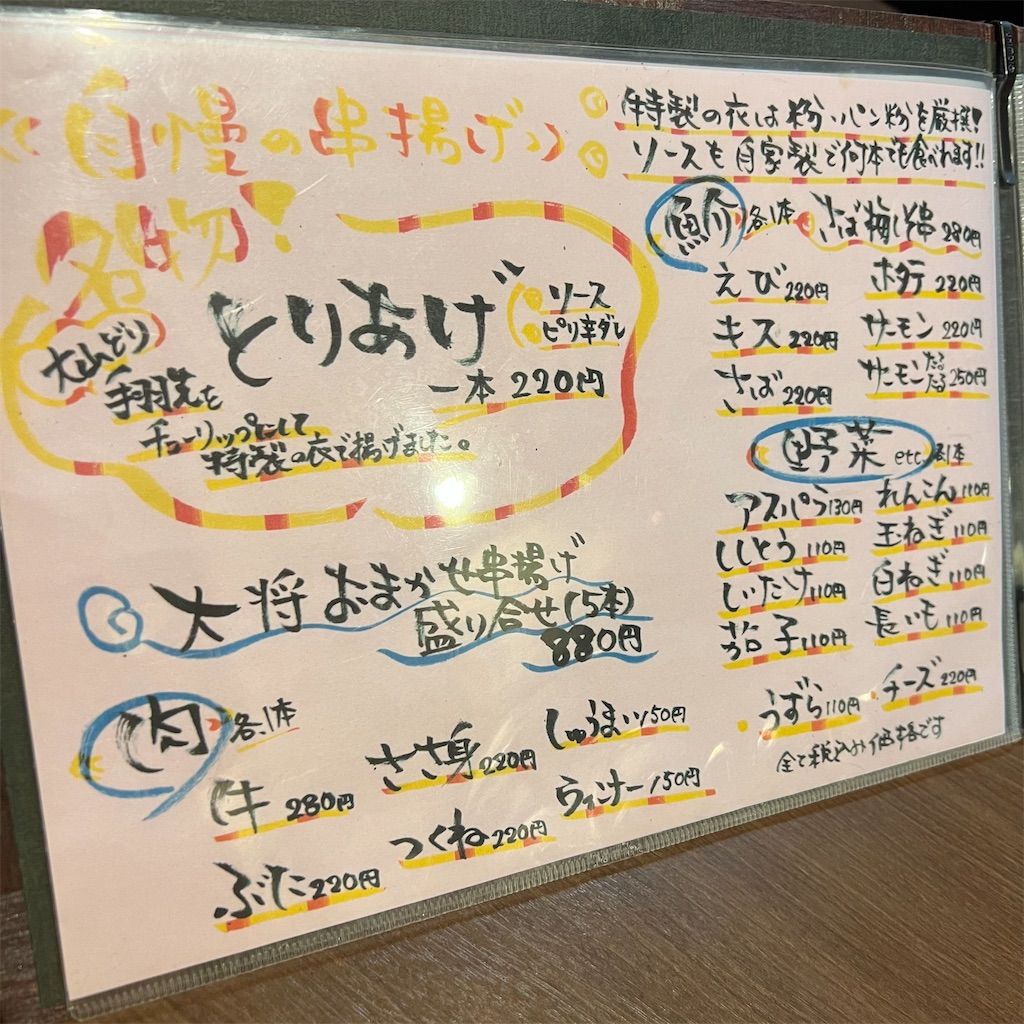 《自慢の串揚げ》
特製の衣は粉、パン粉を厳撰!
ソースも自家製で何本でも食べれます!!
名物?
とりあげ
ソース
ピリ辛ダレ
一本 220円
大山どり
手羽先を
チューリップにして、
特製の衣で揚げました。
大将おまかせ串揚げ
盛り合せ(5本)
880円
肉 各1本
牛 280円
ぶた 220円
ささ身 220円
つくね 220円
しゅうまい 150円
ウィンナー 150円
魚介 各1本
さば梅しそ串 280円
えび 220円
ホタテ 220円
キス 220円
サーモン 220円
さば 220円
サーモンたるたる 250円
野菜 etc 各1本
アスパラ 130円
れんこん 110円
ししとう 110円
玉ねぎ 110円
しいたけ 110円
白ねぎ 110円
茄子 110円
長いも 110円
うずら 110円
チーズ 220円
全て税込み価格です